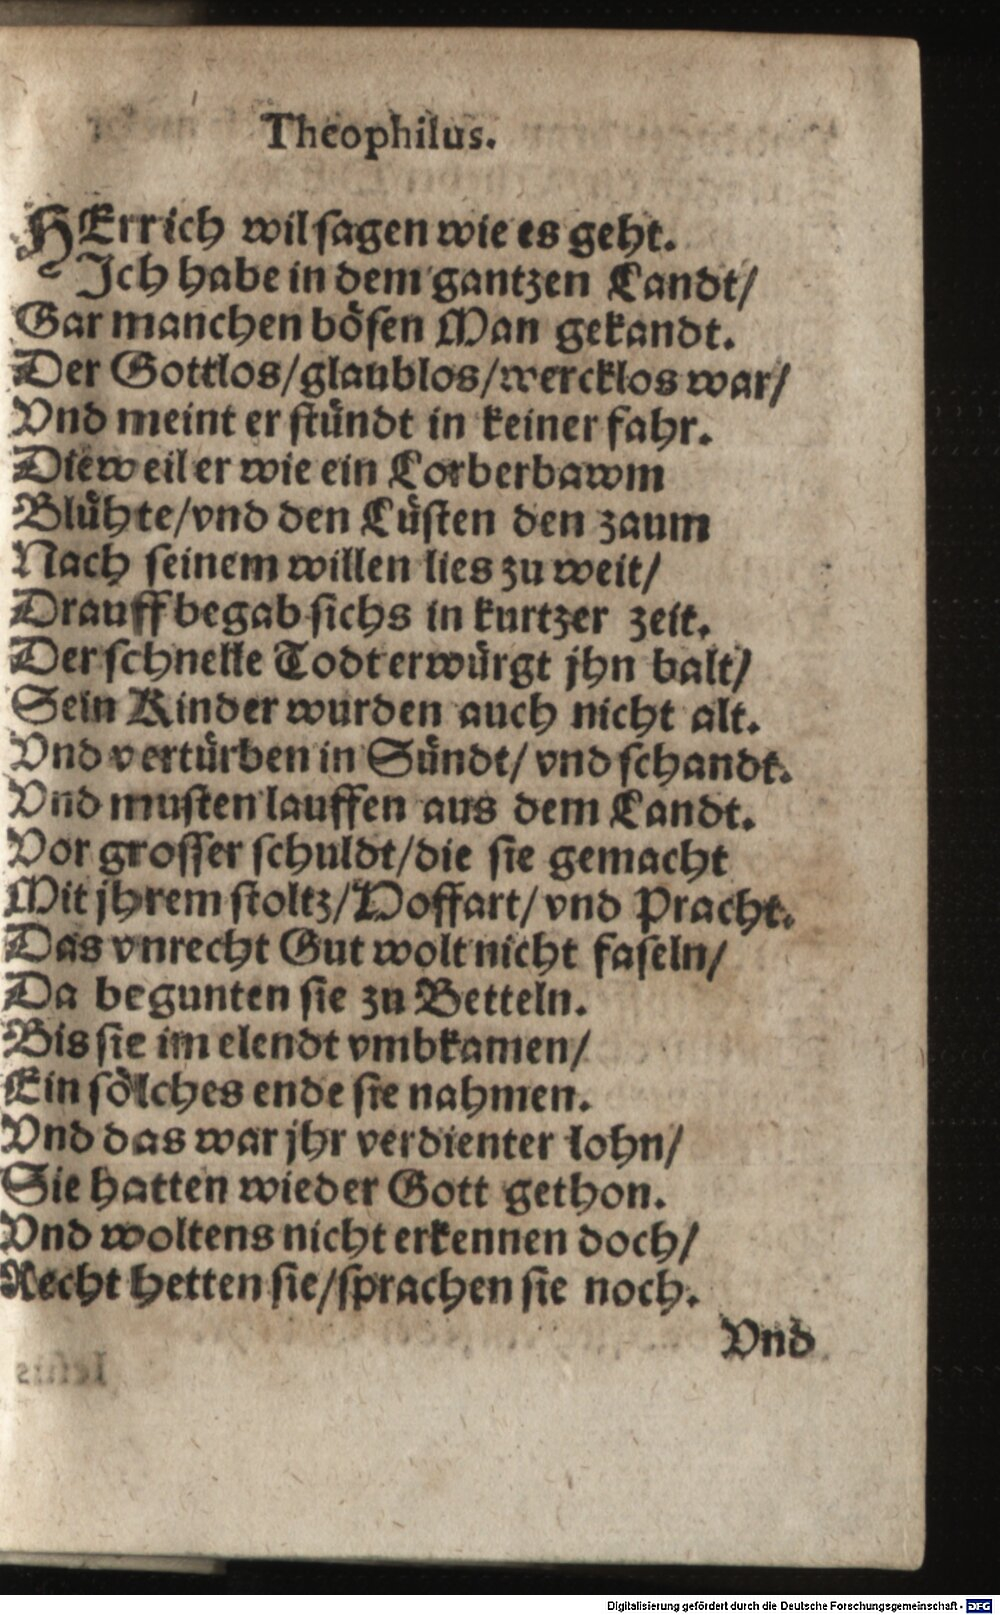 Theophilus.
HErr ich wil sagen wie es geht.
Ich habe in dem gantzen Landt/
Gar manchen bösen Man gekandt.
Der Gottlos/glaublos/wercklos war/
Vnd meint er stündt in keiner fahr.
Dieweil er wie ein Lorberbawm
Blühte/vnd den Lüsten den zaum
Nach seinem willen lies zu weit/
Drauff begab sichs in kurtzer zeit.
Der schnelle Todt erwürgt jhn balt/
Sein Kinder wurden auch nicht alt.
Vnd vertürben in Sündt/ vnd schandt.
Vnd musten lauffen aus dem Landt.
Vor grosser schuldt/die sie gemacht
Mit jhrem stoltz/Hoffart/vnd Pracht.
Das vnrecht Gut wolt nicht faseln/
Da begunten sie zu Betteln.
Bis sie im elendt vmbkamen/
Ein sölches ende sie nahmen.
Vnd das war jhr verdienter lohn/
Sie hatten wieder Gott gethon.
Vnd woltens nicht erkennen doch/
Recht hetten sie/sprachen sie noch.
Vnd
Digitalisierung gefördert durch die Deutsche Forschungsgemeinschaft - DFG